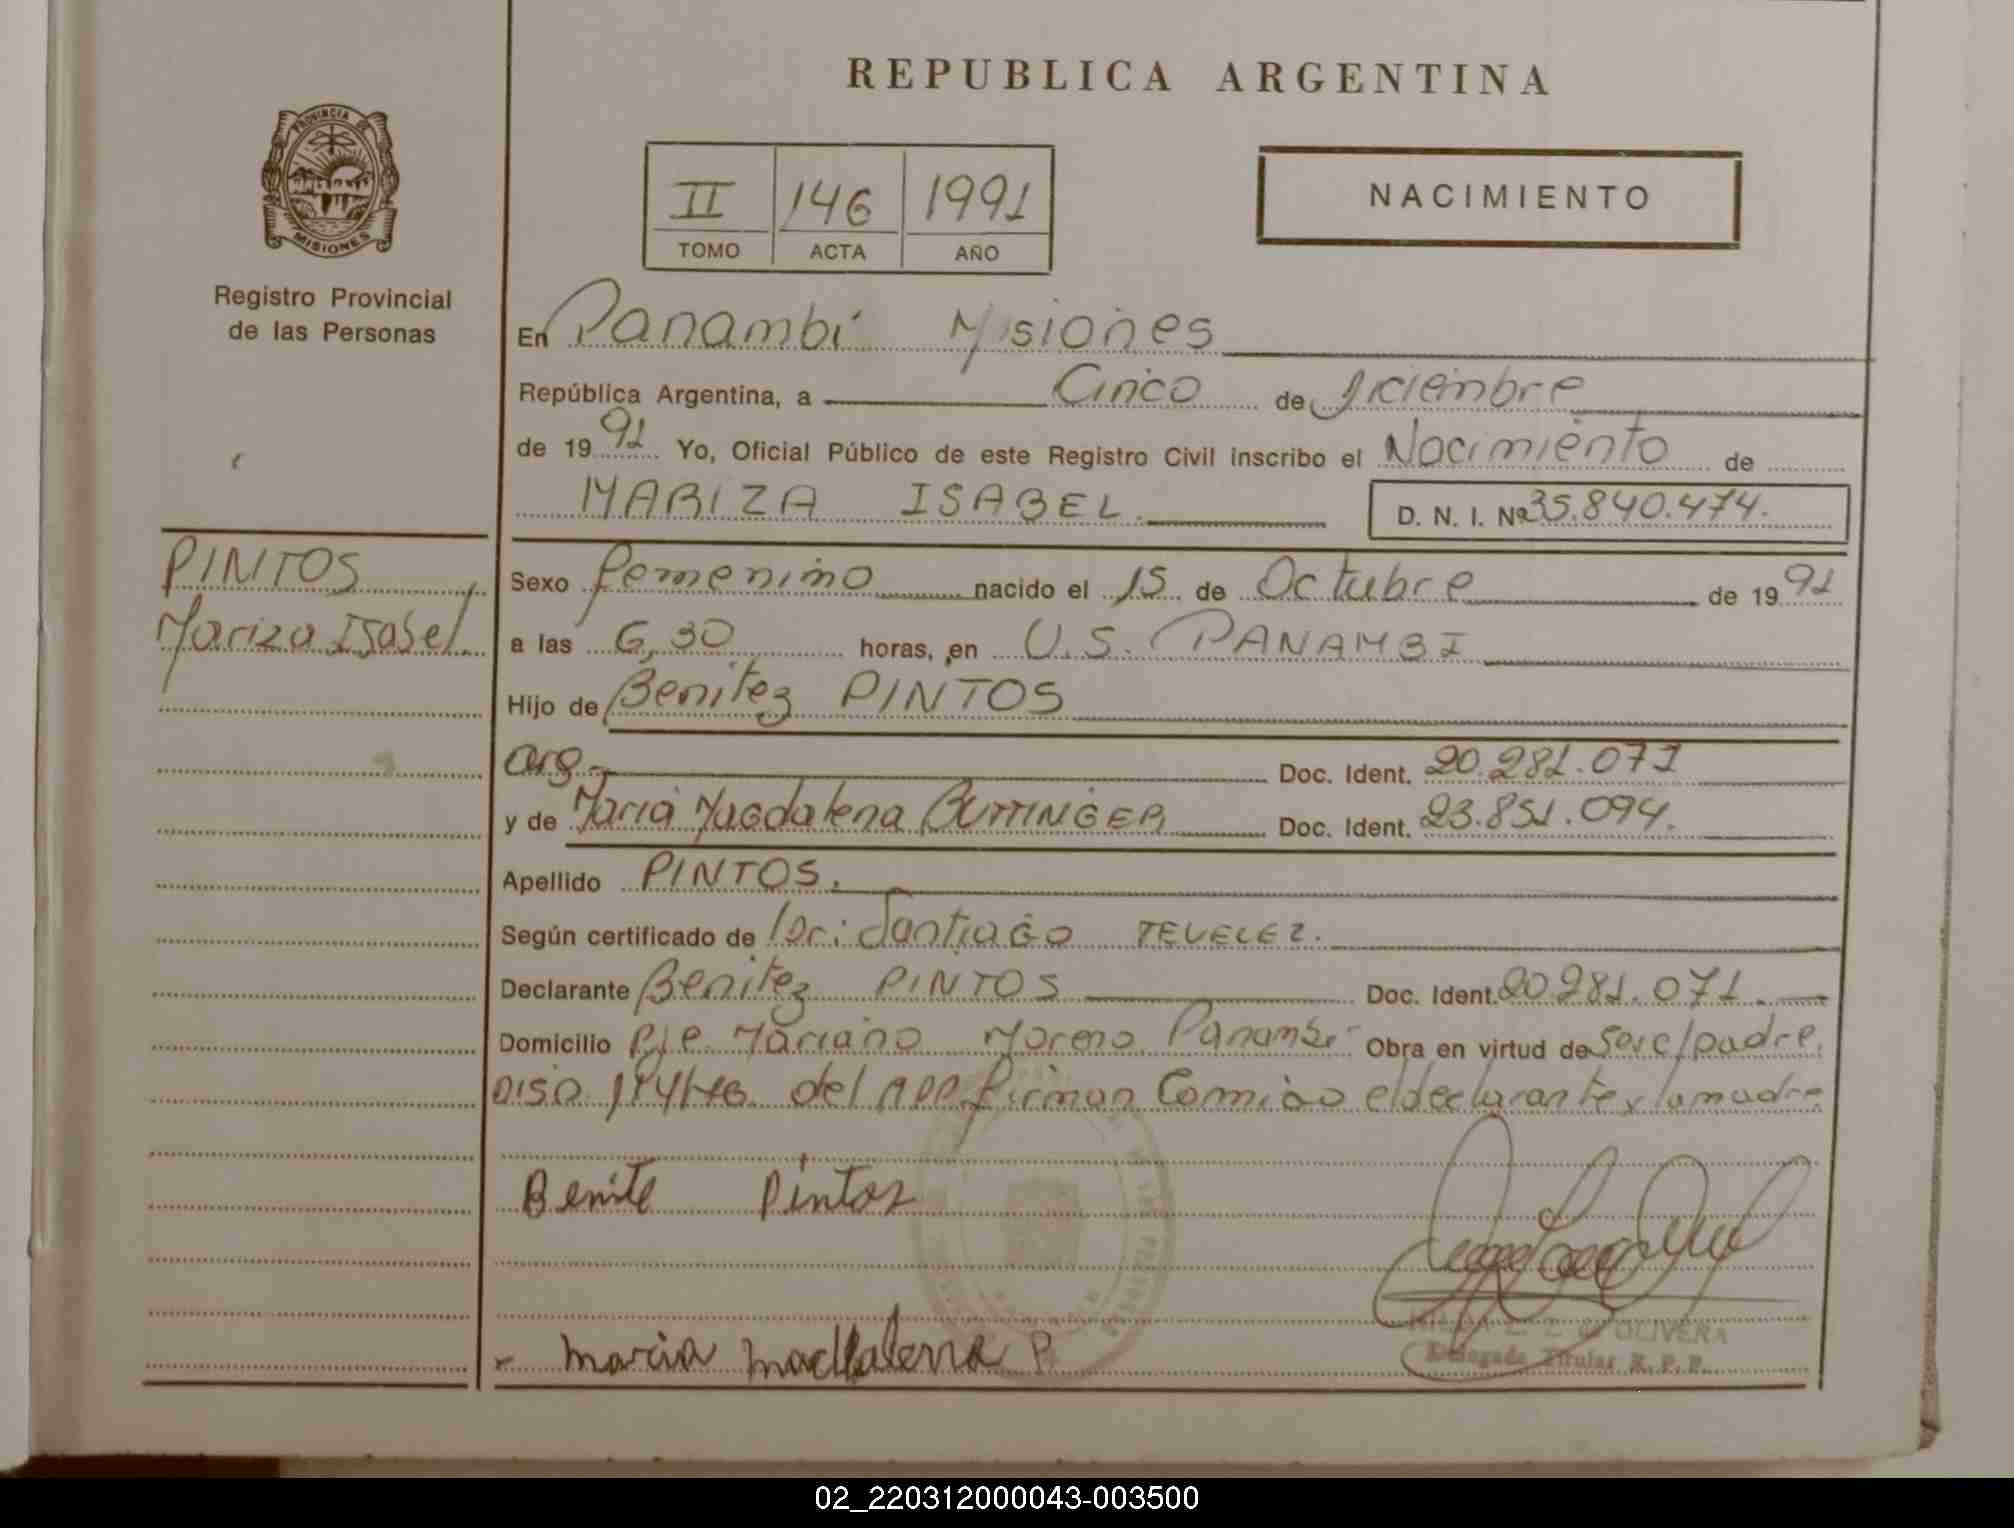 REPUBLICA ARGENTINA
PROVINCIA DE
MISIONES
Registro Provincial
de las Personas
II 146 1991
TOMO ACTA AÑO
NACIMIENTO
En Panambí Misiones
República Argentina, a Cinco de Diciembre
de 1991 Yo, Oficial Público de este Registro Civil inscribo el Nacimiento de
MARIZA ISABEL. D. N. I. Nº 35.840.474.
PINTOS
Mariza Isabel.
Sexo femenino nacido el 15 de Octubre de 1991
a las 6,30 horas, en U.S. PANAMBI
Hijo de Benitez PINTOS
arg.- Doc. Ident. 20.281.071
y de Maria Magdalena BUTTINGER Doc. Ident. 23.851.094.
Apellido PINTOS.
Según certificado de Dr: Santiago TEVELEZ.
Declarante Benitez PINTOS Doc. Ident. 20281.071.
Domicilio Pje. Mariano Moreno Panambí Obra en virtud de ser el padre.
del firman Conmigo el declarante y la madre
Benite Pintos
maria madalena P.
OLIVERA
Delegada Titular R.P.P.
02_220312000043-003500